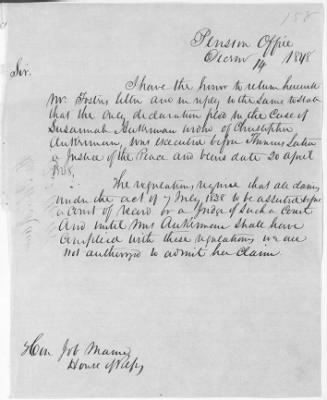 158
Pension Office
Decr 14 1848
Sir.
I have the honor to return herewith
Mr. Fosters letter and in reply to the same to state
that the only declaration filed in the case of
Susannah Ankerman widow of Christopher
Ankerman, was executed before Francis
a Justice of the Peace and bears date 20 April
The regulations require that all claims
under the act of 7 July 1838 to be asserted before
a Court of record or a Judge of such a Court
And until Mrs Ankerman shall have
complied with these regulations we are
not authorized to admit her claim.
Hon Job Mann
House of Reps